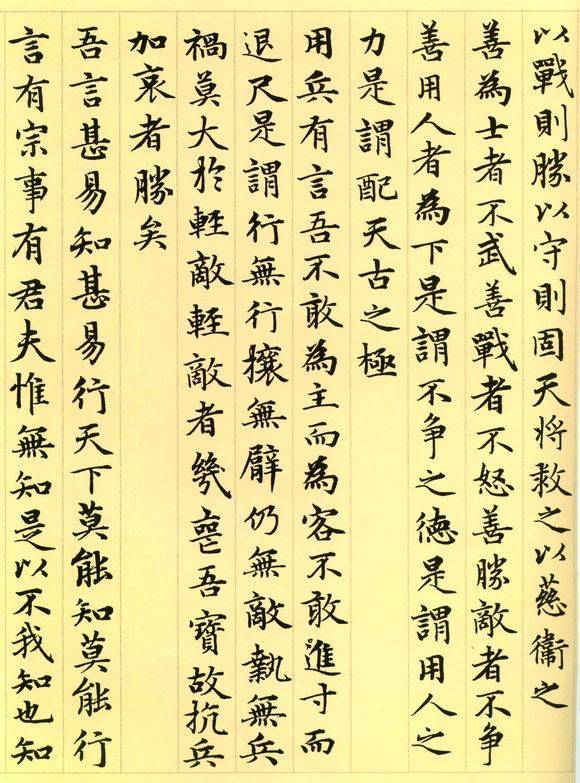 以戰則勝以守則固天將救之以慈衛之
善為士者不武善戰者不怒善勝敵者不争
善用人者為下是謂不争之德是謂用人之
力是謂配天古之極
用兵有言吾不敢為主而為客不敢進寸而
退尺是謂行無行攘無臂仍無敵執無兵
禍莫大於輕敵輕敵者幾喪吾寶故抗兵
加哀者勝矣
吾言甚易知甚易行天下莫能知莫能行
言有宗事有君夫惟無知是以不我知也知